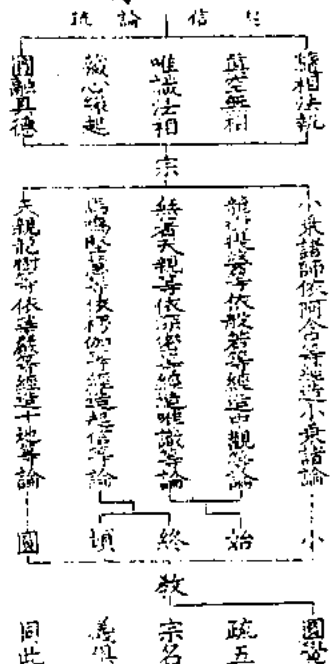 起信論
隨相法執
真空無相
唯識法相
藏心緣起
圓融具德
宗
小乘諸師依阿含等經造小乘諸論
龍樹提婆等依般若等經造中觀等論
無著天親等依深密等經造唯識等論
馬鳴堅慧等依楞伽等經造起信等論
天親龍樹等依華嚴等經造十地等論
小
始
終
頓
圓
教
圓覺
疏五
宗名
義俱
同此